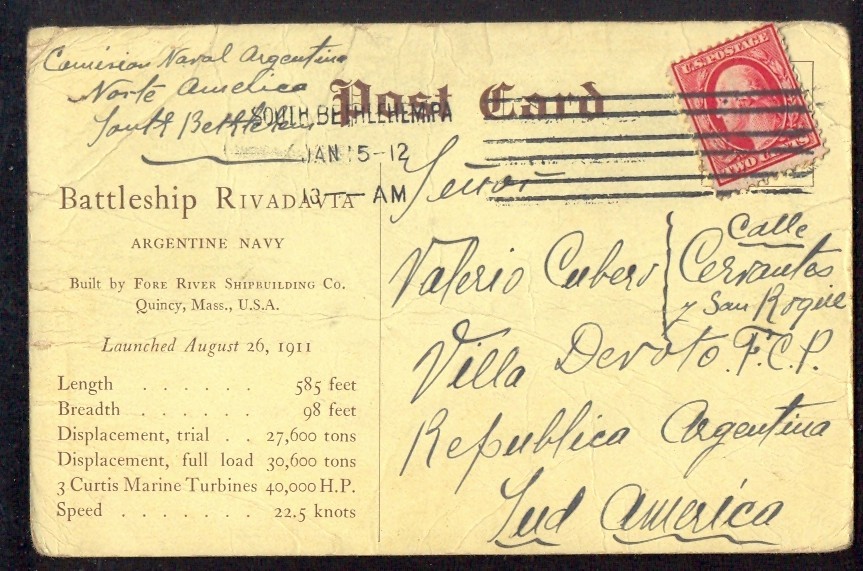 Comision Naval Argentina
Norte America
South Bethlehem
Post Card
SOUTH BETHLEHEM.PA
JAN 5-12
13— AM
U.S. POSTAGE
TWO CENTS
Battleship RIVADAVIA
ARGENTINE NAVY
Built by FORE RIVER SHIPBUILDING CO.
Quincy, Mass., U.S.A.
Launched August 26, 1911
Length . . . . . . 585 feet
Breadth . . . . . . 98 feet
Displacement, trial . . 27,600 tons
Displacement, full load 30,600 tons
3 Curtis Marine Turbines 40,000 H.P.
Speed . . . . . . . 22.5 knots
Señor
Valerio Cubero
Calle
Cervantes
y San Roque
Villa Devoto. F.C.P.
Republica Argentina
Sud America